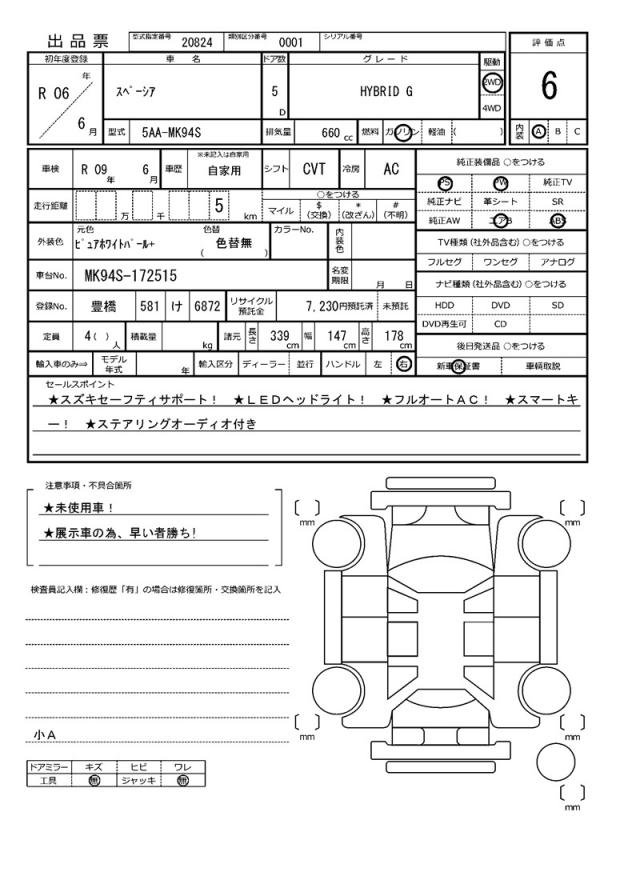 出品票 型式指定番号 20824 類別区分番号 0001 シリアル番号
初年度登録 車名 ドア数 グレード 駆動 評価点
R 06 年 6 月 スペーシア 5 D HYBRID G 2WD 4WD 6
型式 5AA-MK94S 排気量 660 cc 燃料 ガソリン 軽油 ( ) 内装 A B C
車検 R 09 年 6 月 車歴 ※未記入は自家用 自家用 シフト CVT 冷房 AC 純正装備品 ○をつける
PS PW 純正TV
走行距離 万 千 5 km ○をつける 純正ナビ 革シート SR
マイル $(交換) *(改ざん) #(不明) 純正AW エアB ABS
外装色 元色 ピュアホワイトパール+ 色替 ( 色替無 ) カラーNo. 内装色 TV種類 (社外品含む) ○をつける
フルセグ ワンセグ アナログ
車台No. MK94S-172515 名変期限 月 日 ナビ種類 (社外品含む) ○をつける
登録No. 豊橋 581 け 6872 リサイクル預託金 7,230円預託済 未預託 HDD DVD SD
DVD再生可 CD
定員 4( ) 人 積載量 kg 諸元 長さ 339 cm 幅 147 cm 高さ 178 cm 後日発送品 ○をつける
輸入車のみ⇒ モデル年式 年 輸入区分 ディーラー 並行 ハンドル 左 右 新車保証書 車輌取説
セールスポイント
★スズキセーフティサポート! ★LEDヘッドライト! ★フルオートAC! ★スマートキ
ー! ★ステアリングオーディオ付き
注意事項・不具合箇所
★未使用車!
★展示車の為、早い者勝ち!
検査員記入欄:修復歴「有」の場合は修復箇所・交換箇所を記入
小A
ドアミラー キズ ヒビ ワレ
工具 無 ジャッキ 無
mm
mm
mm
mm
mm